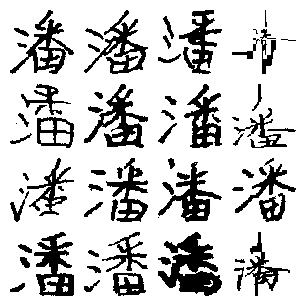 潘潘潘潘
潘潘潘潘
潘潘潘潘
潘潘潘潘